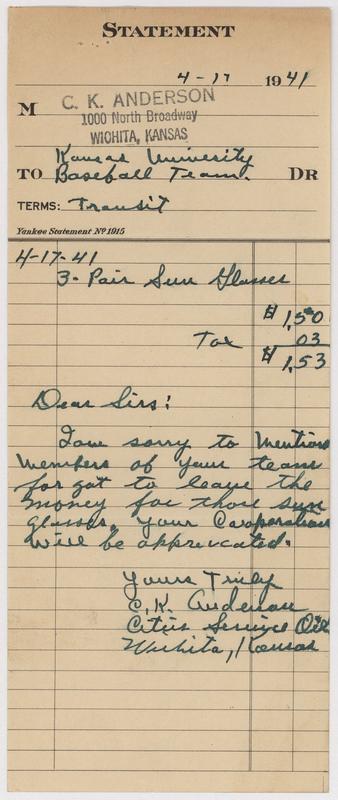 STATEMENT
4-17 1941
M C. K. ANDERSON
1000 North Broadway
WICHITA, KANSAS
Kansas University
TO Baseball Team. DR
TERMS: Transit
Yankee Statement Nº 1915
4-17-41
3- Pair Sun Glasses
$ 1.50
Tax 03
$ 1.53
Dear Sirs:
I am sorry to mention
members of your team
for got to leave the
money for those sun
glasses. Your Cooporation
will be apprecated.
Yours Truly
C. K. Anderson
Cities Service Oil
Wichita, Kansas